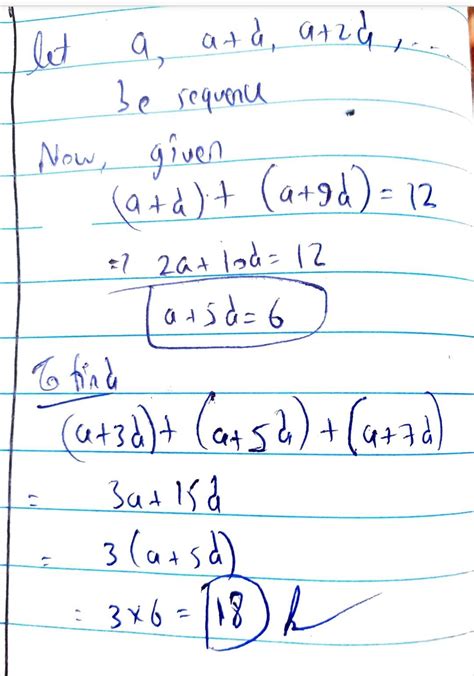 let a, a+d, a+2d, ...
be sequence
Now, given
(a+d) + (a+9d) = 12
=> 2a + 10d = 12
a + 5d = 6
To find
(a+3d) + (a+5d) + (a+7d)
= 3a + 15d
= 3(a+5d)
= 3×6 = 18